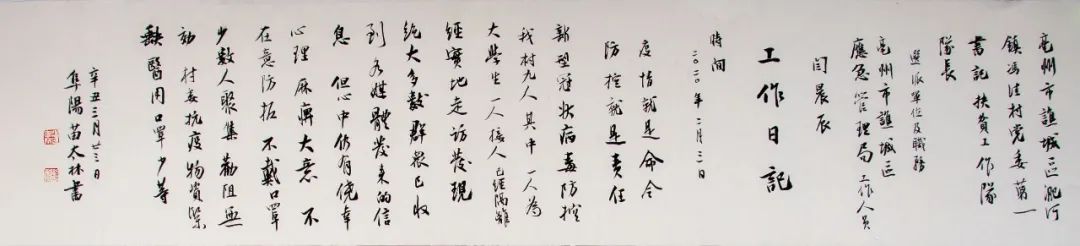 亳州市譙城區淝河
鎮馮洼村党委第一
書記 扶貧工作隊
隊長
選派單位及職務
亳州市譙城區
應急管理局工作人員
闫晨辰
工作日記
時间
二〇二〇年二月三日
疫情就是命令
防控就是責任
新型冠狀病毒防控
我村九人 其中一人為
大學生 一人接人 已經隔離
經實地走訪發現
絕大多數群眾已收
到各媒體發來的信
息 但心中仍有侥幸
心理 麻痹大意 不
在意防拓 不戴口罩
少數人聚集 勸阻無
効 村委抗疫物資緊
缺醫用口罩少等
辛丑三月廿三日
阜陽苗太林書